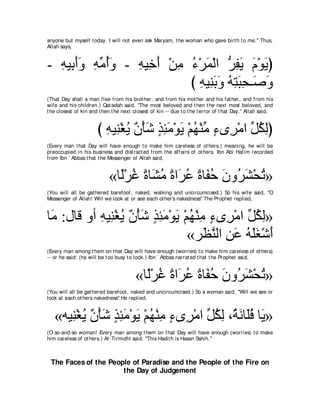 anyone but myself today. I will not even ask Maryam, the woman who gave birth to me.'' Thus,
Allah says,
- ِهيِبَأَو ِهِّمُأَو - ِهيِخَأ ْنِم ُءْرَمْلا ُّرِفَي َمْوَي)
( ِهيِنَبَو ُهِتَبِحـَصَو
(That Day shall a man flee from his brother, and from his mother and his father, and from his
wife and his children.) Qatadah said. "The most beloved and then the next most beloved, and
the closest of kin and then the closest of kin -- due to the terror of that Day.'' Allah said,
( ِهيِنْغُي ٌنْأَش ٍذِئَمْوَي ْمُهْنِّم ٍءىِرْما ِّلُكِل)
(Every man that Day will have enough to make him careless of others.) meaning, he will be
preoccupied in his business and distracted from the affairs of others. Ibn Abi Hatim recorded
from Ibn `Abbas that the Messenger of Allah said,
«اًلْرُغ ًةاَشُم ًةاَرُع ًةاَفُح َنوُرَشْحُت»
(You will all be gathered barefoot, naked, walking and uncircumcised.) So his wife said, "O
Messenger of Allah! Will we look at or see each other's nakedness'' The Prophet replied,
اَم :لاَق وأ ِهيِنْغُي ٌنْأَش ٍذِئَمْوَي ْمُهْنِم ٍءىِرْما ِّلُكِل»
«رَظَّنلا ِنَع ُهَلَغْشَأ
(Every man among them on that Day will have enough (worries) to make him careless of others)
-- or he said: (he will be too busy to look.) Ibn `Abbas narrated that the Prophet said,
«اًلْرُغ ًةاَرُع ًةاَفُح َنوُرَشْحُت»
(You will all be gathered barefoot, naked and uncircumcised.) So a woman said, "Will we see or
look at each others nakedness'' He replied,
«هيِنْغُي ٌنْأَش ٍذِئَمْوَي ْمُهْنِم ٍءىِرْما ِّلُكِل ،ُةَناَلُف اَي»
(O so-and-so woman! Every man among them on that Day will have enough (worries) to make
him careless of others.) At-Tirmidhi said, "This Hadith is Hasan Sahih.''
The Faces of the People of Paradise and the People of the Fire on
the Day of Judgement